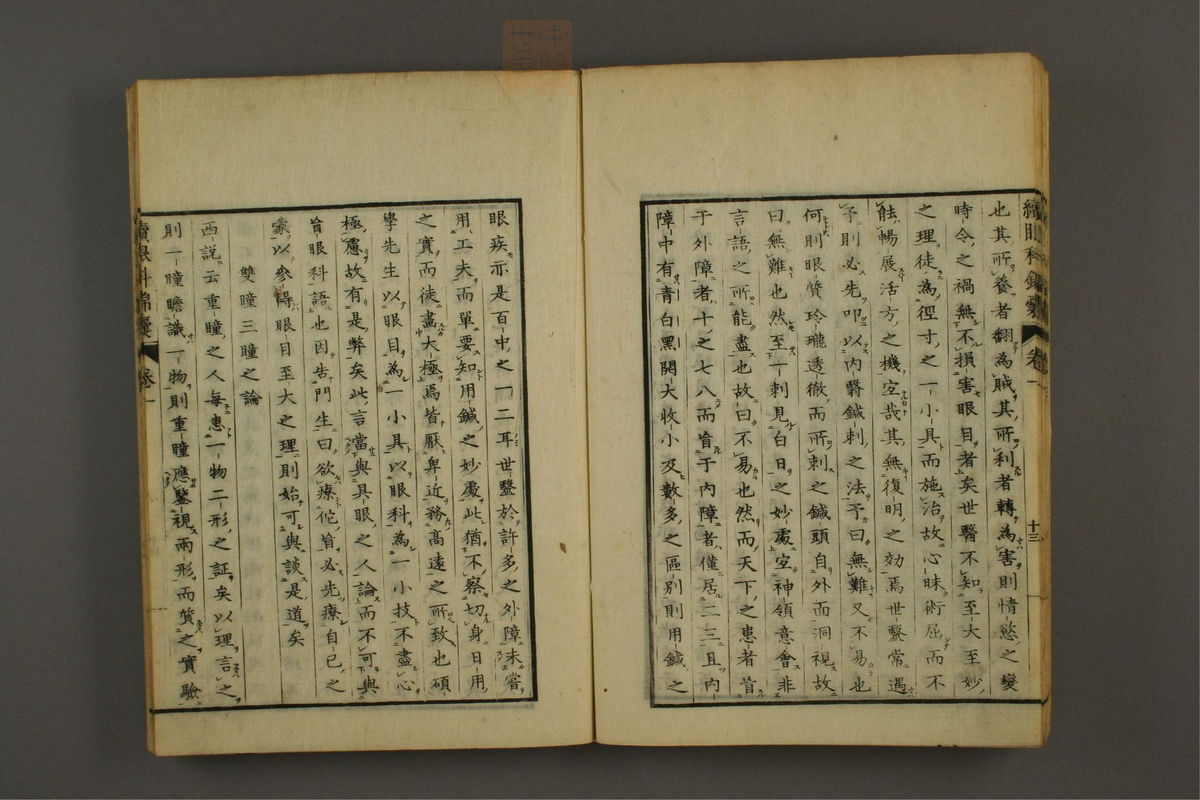 續眼科錦囊 卷一 十三
也其所養者翻為賊其所利者轉為害則情慾之變
時令之禍無不損害眼目者矣世醫不知至大至妙
之理徒為徑寸之一小具而施治故心昧術屈而不
能暢展活方之機宜哉其無復明之効焉世毉常遇
予則必先叩以內翳鍼刺之法予曰無難又不易也
何則眼質玲瓏透徹而所刺之鍼頭自外面洞視故
曰無難也然至一刺見白日之妙處宜神領意會非
言語之所能盡也故曰不易也然而天下之患者首
于外障者十之七八而盲于內障者僅居二三且內
障中有青白黑開大收小及數多之區別則用鍼之
眼疾示是百中之一二耳世毉於許多之外障未嘗
用工夫而單要知用鍼之妙處此猶不察切身日用
之實而徒盡大極焉皆厭卑近務高遠之所致也碩
學先生以眼目為一小具以眼科為一小技不盡心
極慮故有是弊矣此言當與具眼之人論而不可與
盲眼科語也因告門生曰欲療佗盲必先療自己之
蒙以參得眼目至大之理則始可與談是道矣
雙瞳三瞳之論
西說云重瞳之人每患一物二形之証矣以理言之
則一瞳瞻識一物則重瞳應鑒視兩形而質之實驗
續眼科錦囊 卷一